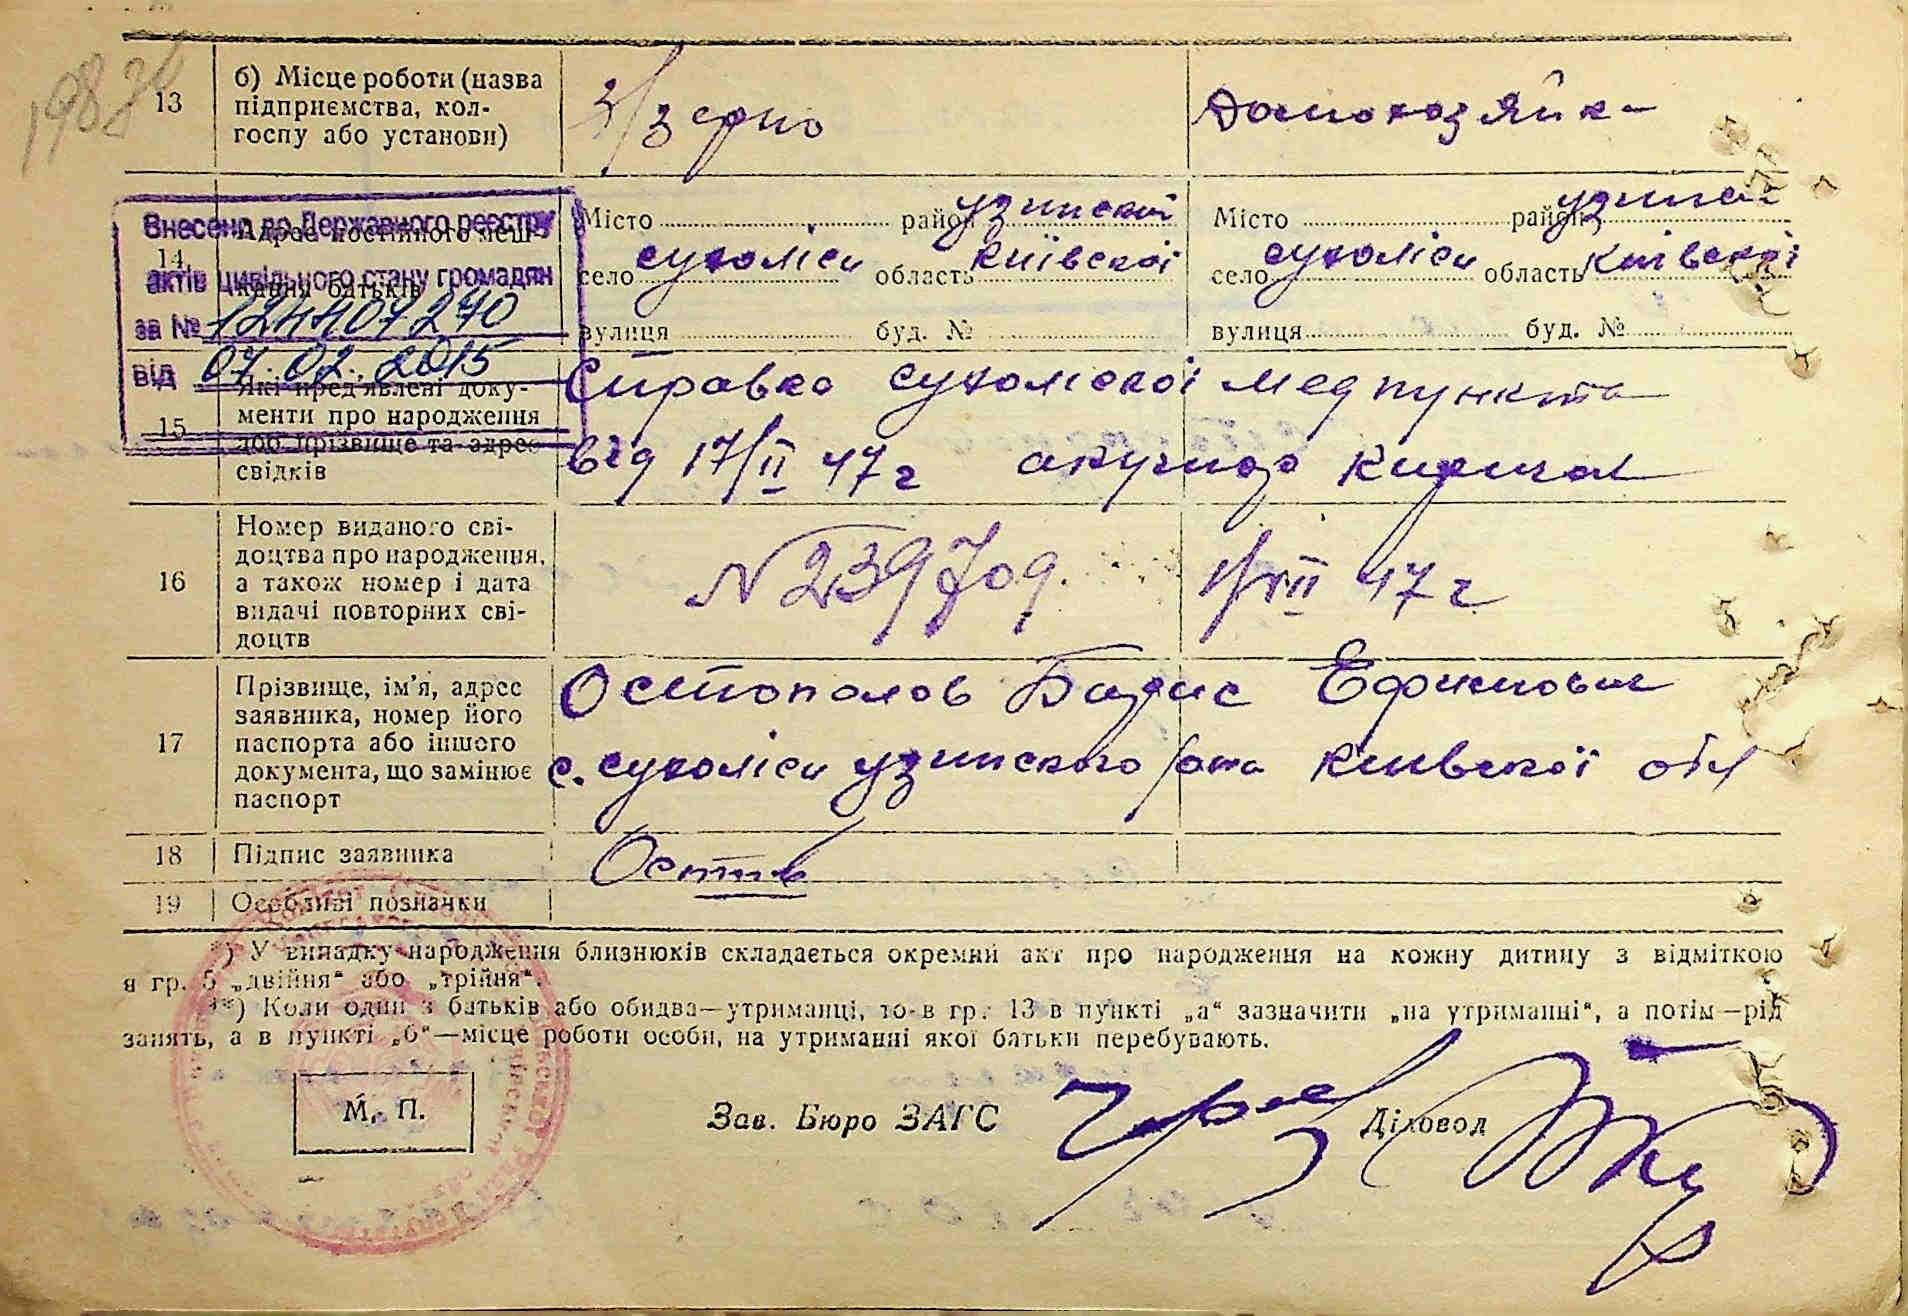 198
13
б) Місце роботи (назва
підприємства, кол-
госпу або установи)
з/зерно
Домохозяйка
Внесено до Державного реєстру
актів цивільного стану громадян
за №
від 07.02.2015
14
Адрес постійного меш-
кання батьків
Місто район узинской
село сухоліси область київскої
вулиця буд. №
Місто район
село сухоліси область київскої
вулиця буд. №
15
Які пред'явлені доку-
менти про народження
або прізвище та адрес
свідків
Справка сухоліскої медпункта
від 17/II 47 г
16
Номер виданого сві-
доцтва про народження,
а також номер і дата
видачі повторних сві-
доцтв
N 239709
47 г
17
Прізвище, ім'я, адрес
заявника, номер його
паспорта або іншого
документа, що замінює
паспорт
Остополов Борис Ефимович
с. сухоліси узинского р-на киевскої обл
18
Підпис заявника
19
Особливі позначки
*) У випадку народження близнюків складається окремий акт про народження на кожну дитину з відміткою
в гр. 5 „двійня“ або „трійня“.
**) Коли один з батьків або обидва—утриманці, то в гр. 13 в пункті „а“ зазначити „на утриманні“, а потім—рід
занять, а в пункті „б“—місце роботи особи, на утриманні якої батьки перебувають.
М. П.
Зав. Бюро ЗАГС
Діловод